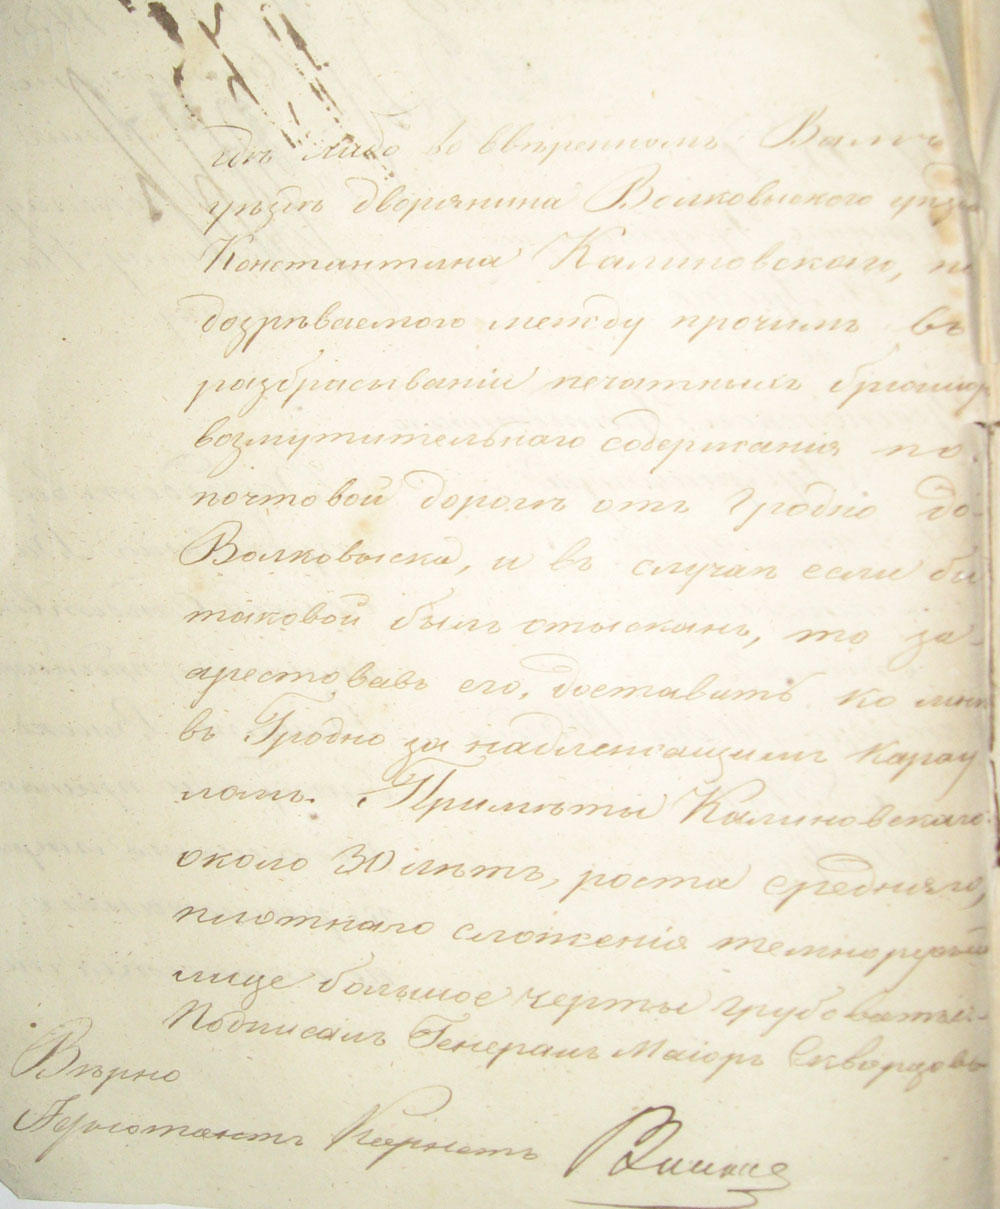 гдѣ либо во ввѣренномъ Вамъ
уѣздѣ дворянина Волковыского уѣзда
Константина Калиновского, по
дозрѣваемого между прочимъ въ
разбрасываніи печатныхъ брошюръ
возмутительнаго содержания по
почтовой дорогѣ отъ Гродно до
Волковыска, и въ случаѣ если бы
таковой былъ отысканъ, то за-
арестовавъ его, доставить ко мнѣ
въ Гродно за надлежащимъ карау
ломъ. Примѣты Калиновскаго:
около 30 лѣтъ, роста средняго,
плотнаго сложенія темнорусый
лице большое черты грубоватые
Подписалъ Генералъ Маіоръ Скворцовъ
Вѣрно
Адъютантъ Корнетъ